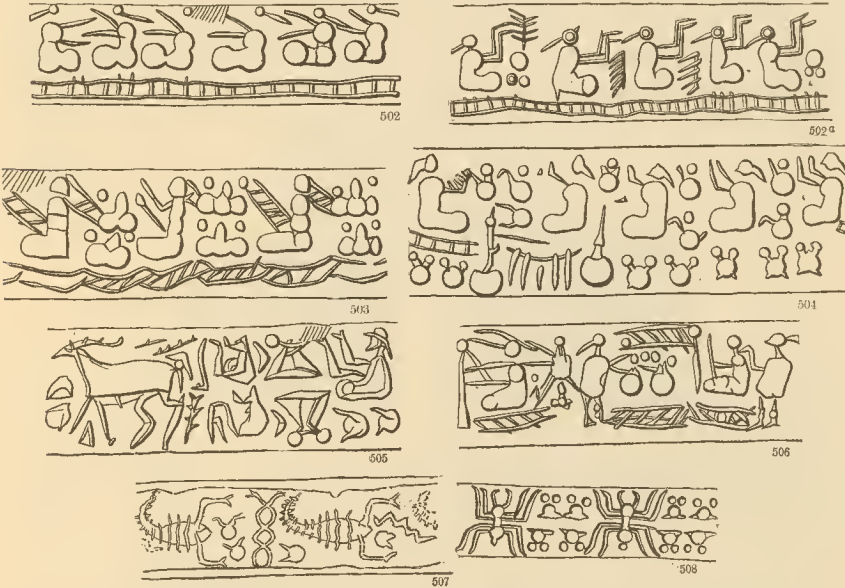 502
502a
503
504
505
506
507
508